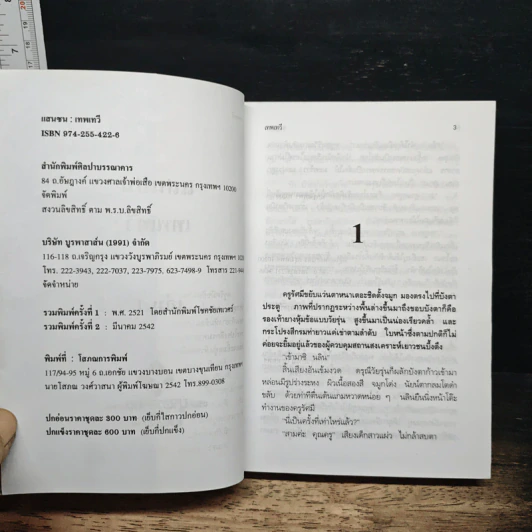 แสนซน : เทพเทวี
ISBN 974-255-422-6
สำนักพิมพ์ศิลปาบรรณาคาร
84 ถ.อัษฎางค์ แขวงศาลเจ้าพ่อเสือ เขตพระนคร กรุงเทพฯ 10200
จัดพิมพ์
สงวนลิขสิทธิ์ ตาม พ.ร.บ.ลิขสิทธิ์
บริษัท บูรพาสาส์น (1991) จำกัด
116-118 ถ.เจริญกรุง แขวงวังบูรพาภิรมย์ เขตพระนคร กรุงเทพฯ
โทร. 222-3943, 222-7037, 223-7975. 623-7498-9 โทรสาร
จัดจำหน่าย
รวมพิมพ์ครั้งที่ 1 : พ.ศ. 2521 โดยสำนักพิมพ์โชคชัยเทเวศร์
รวมพิมพ์ครั้งที่ 2 : มีนาคม 2542
พิมพ์ที่ : โสภณการพิมพ์
117/94-95 หมู่ 6 ถ.เอกชัย แขวงบางบอน เขตบางขุนเทียน กรุงเทพฯ
นายโสภณ วงศ์วาสนา ผู้พิมพ์โฆษณา 2542 โทร.899-0308
ปกอ่อนราคาชุดละ 500 บาท (เย็บกี่ไสกาวปกอ่อน)
ปกแข็งราคาชุดละ 600 บาท (เย็บกี่ปกแข็ง)
เทพเทวี
3
1
ครูรัศมีขยับแว่นตาหนาเตอะชิดดั้งจมูก มองตรงไปที่บังตา
ประตู ภาพที่ปรากฏระหว่างพื้นล่างขึ้นมาถึงขอบบังตาก็คือ
รองเท้ายางหุ้มรัดแบบวัยรุ่น สูงขึ้นมาเป็นน่องเรียวคล้ำ และ
กระโปรงสีกรมท่ายาวแค่เข่าตามลำดับ ใบหน้าซึ่งตามปกติก็ไม่
ค่อยจะยิ้มอยู่แล้วของผู้ควบคุมสถานสงเคราะห์เยาวชนบึ้งตึง
“เข้ามาซิ นลิน”
สิ้นเสียงอันเข้มงวด ดรุณีวัยรุ่นก็ผลักบังตาก้าวเข้ามา
หล่อนมีรูปร่างระหง ผิวเนื้อสองสี จมูกโด่ง นัยน์ตากลมโตดำ
ขลับ ด้วยท่าทีตื่นเต้นแกมหวาดหน่อย ๆ นลินยืนนิ่งหน้าโต๊ะ
ทำงานของครูรัศมี
“นี่เป็นครั้งที่เท่าไหร่แล้ว?”
“สามค่ะ คุณครู” เสียงเด็กสาวแผ่ว ไม่กล้าสบตา